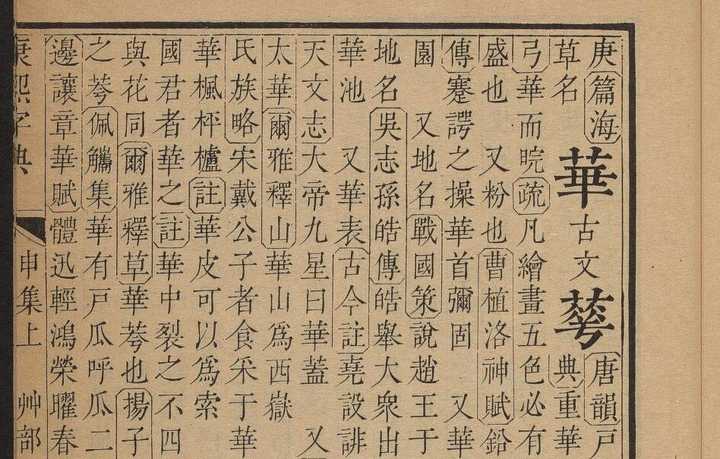 庚篇海
草名
華 古文
唐韻戸
典重華
弓華而睆疏凡繪畫五色必有
盛也 又粉也曹植洛神賦鉛
傳蹇諤之操華首彌固 又華
園 又地名戰國策說趙王于
地名吳志孫皓傳皓舉大衆出
華池 又華表古今註堯設誹
天文志大帝九星曰華蓋 又
太華爾雅釋山華山爲西嶽
氏族略宋戴公子者食采于華
華楓枰櫨註華皮可以爲索
國君者華之註華中裂之不四
與花同爾雅釋草華荂也揚子
之荂佩觿集華有戸瓜呼瓜二
邊讓章華賦體迅輕鴻榮曜春
康熙字典 申集上 艸部